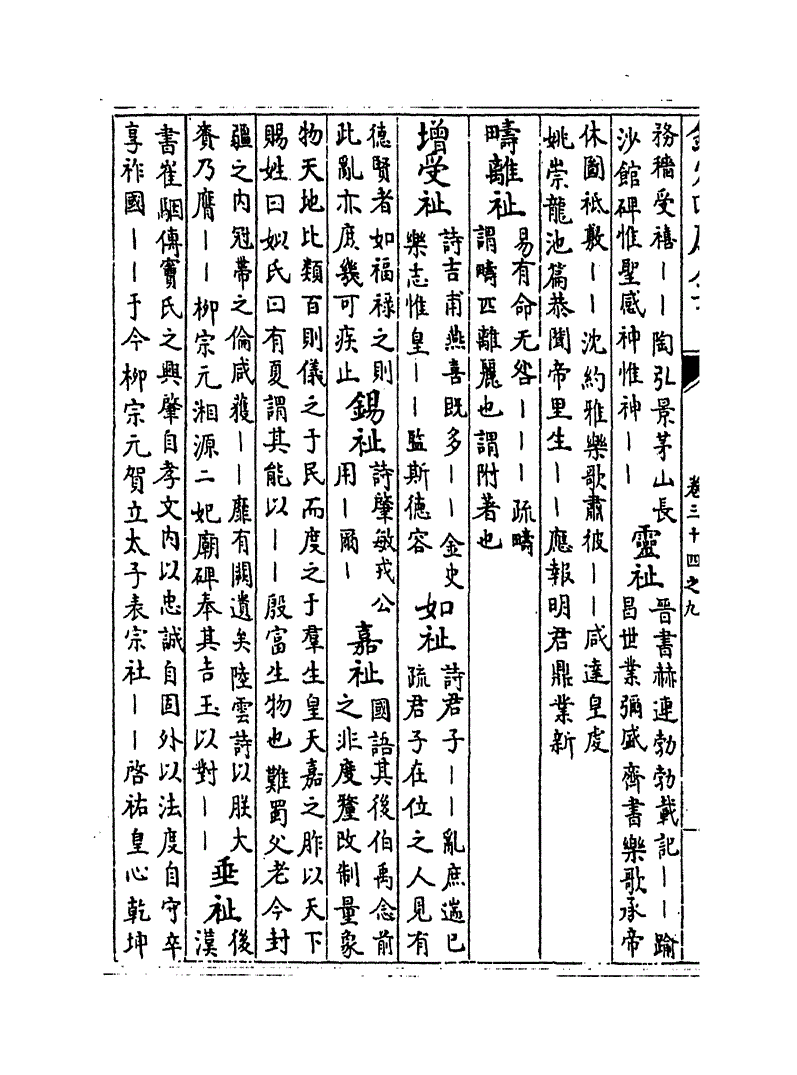 卷三十四之九
務穡受禧丨丨陶弘景茅山長
沙館碑惟聖感神惟神丨丨
靈祉
晉書赫連勃勃載記丨丨踰
昌世業彌盛齊書樂歌承帝
休圖祗敷丨丨沈約雅樂歌肅彼丨丨咸達皇虔
姚崇龍池篇恭聞帝里生丨丨應報明君鼎業新
疇離祉
易有命无咎丨丨丨疏疇
謂疇匹離麗也謂附著也
增受祉
詩吉甫燕喜既多丨丨金史
樂志惟皇丨丨監斯徳容
如祉
詩君子丨丨亂庶遄已
疏君子在位之人見有
德賢者如福禄之則
此亂亦庶幾可疾止
錫祉
詩肇敏戎公
用丨爾丨
嘉祉
國語其後伯禹念前
之非度釐改制量象
物天地比類百則儀之于民而度之于羣生皇天嘉之胙以天下
賜姓曰姒氏曰有夏謂其能以丨丨殷富生物也難蜀父老今封
疆之内冠帶之倫咸獲丨丨靡有闕遺矣陸雲詩以朕大
賚乃膺丨丨柳宗元湘源二妃廟碑奉其吉玉以對丨丨
垂祉
後
漢
書崔駰傳竇氏之興肇自孝文内以忠誠自固外以法度自守卒
享祚國丨丨于今柳宗元賀立太子表宗社丨丨啓祐皇心乾坤